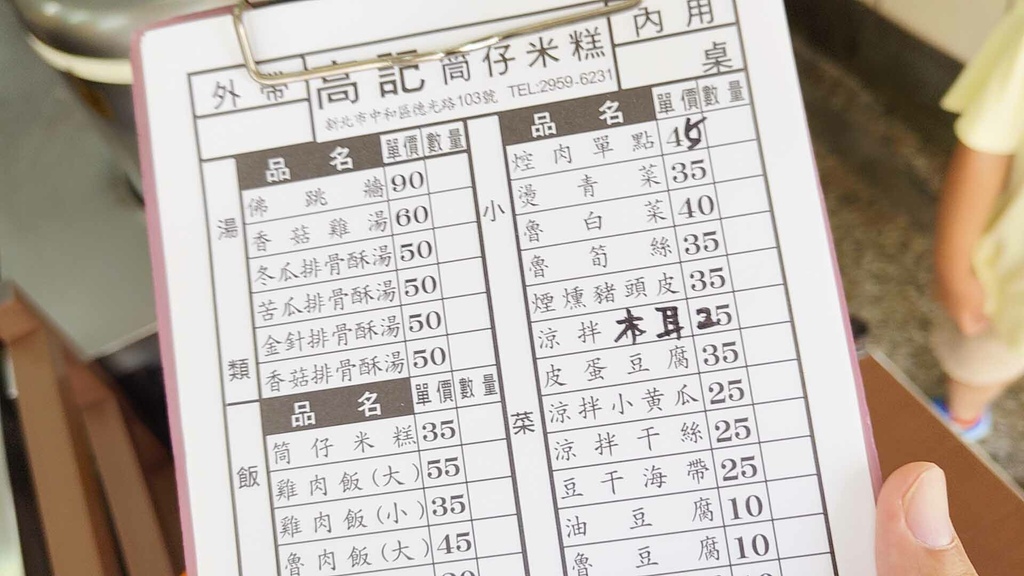 外帶
高記 筒仔米糕
內用
桌
新北市中和區德光路103號 TEL:2959-6231
湯類
品名 單價 數量
佛跳牆 90
香菇雞湯 60
冬瓜排骨酥湯 50
苦瓜排骨酥湯 50
金針排骨酥湯 50
香菇排骨酥湯 50
飯
品名 單價 數量
筒仔米糕 35
雞肉飯(大) 55
雞肉飯(小) 35
魯肉飯(大) 45
小菜
品名 單價 數量
焢肉單點 45
燙青菜 35
魯白菜 40
魯筍絲 35
煙燻豬頭皮 35
涼拌木耳 25
皮蛋豆腐 35
涼拌小黃瓜 25
涼拌干絲 25
豆干海帶 25
油豆腐 10
魯豆腐 10